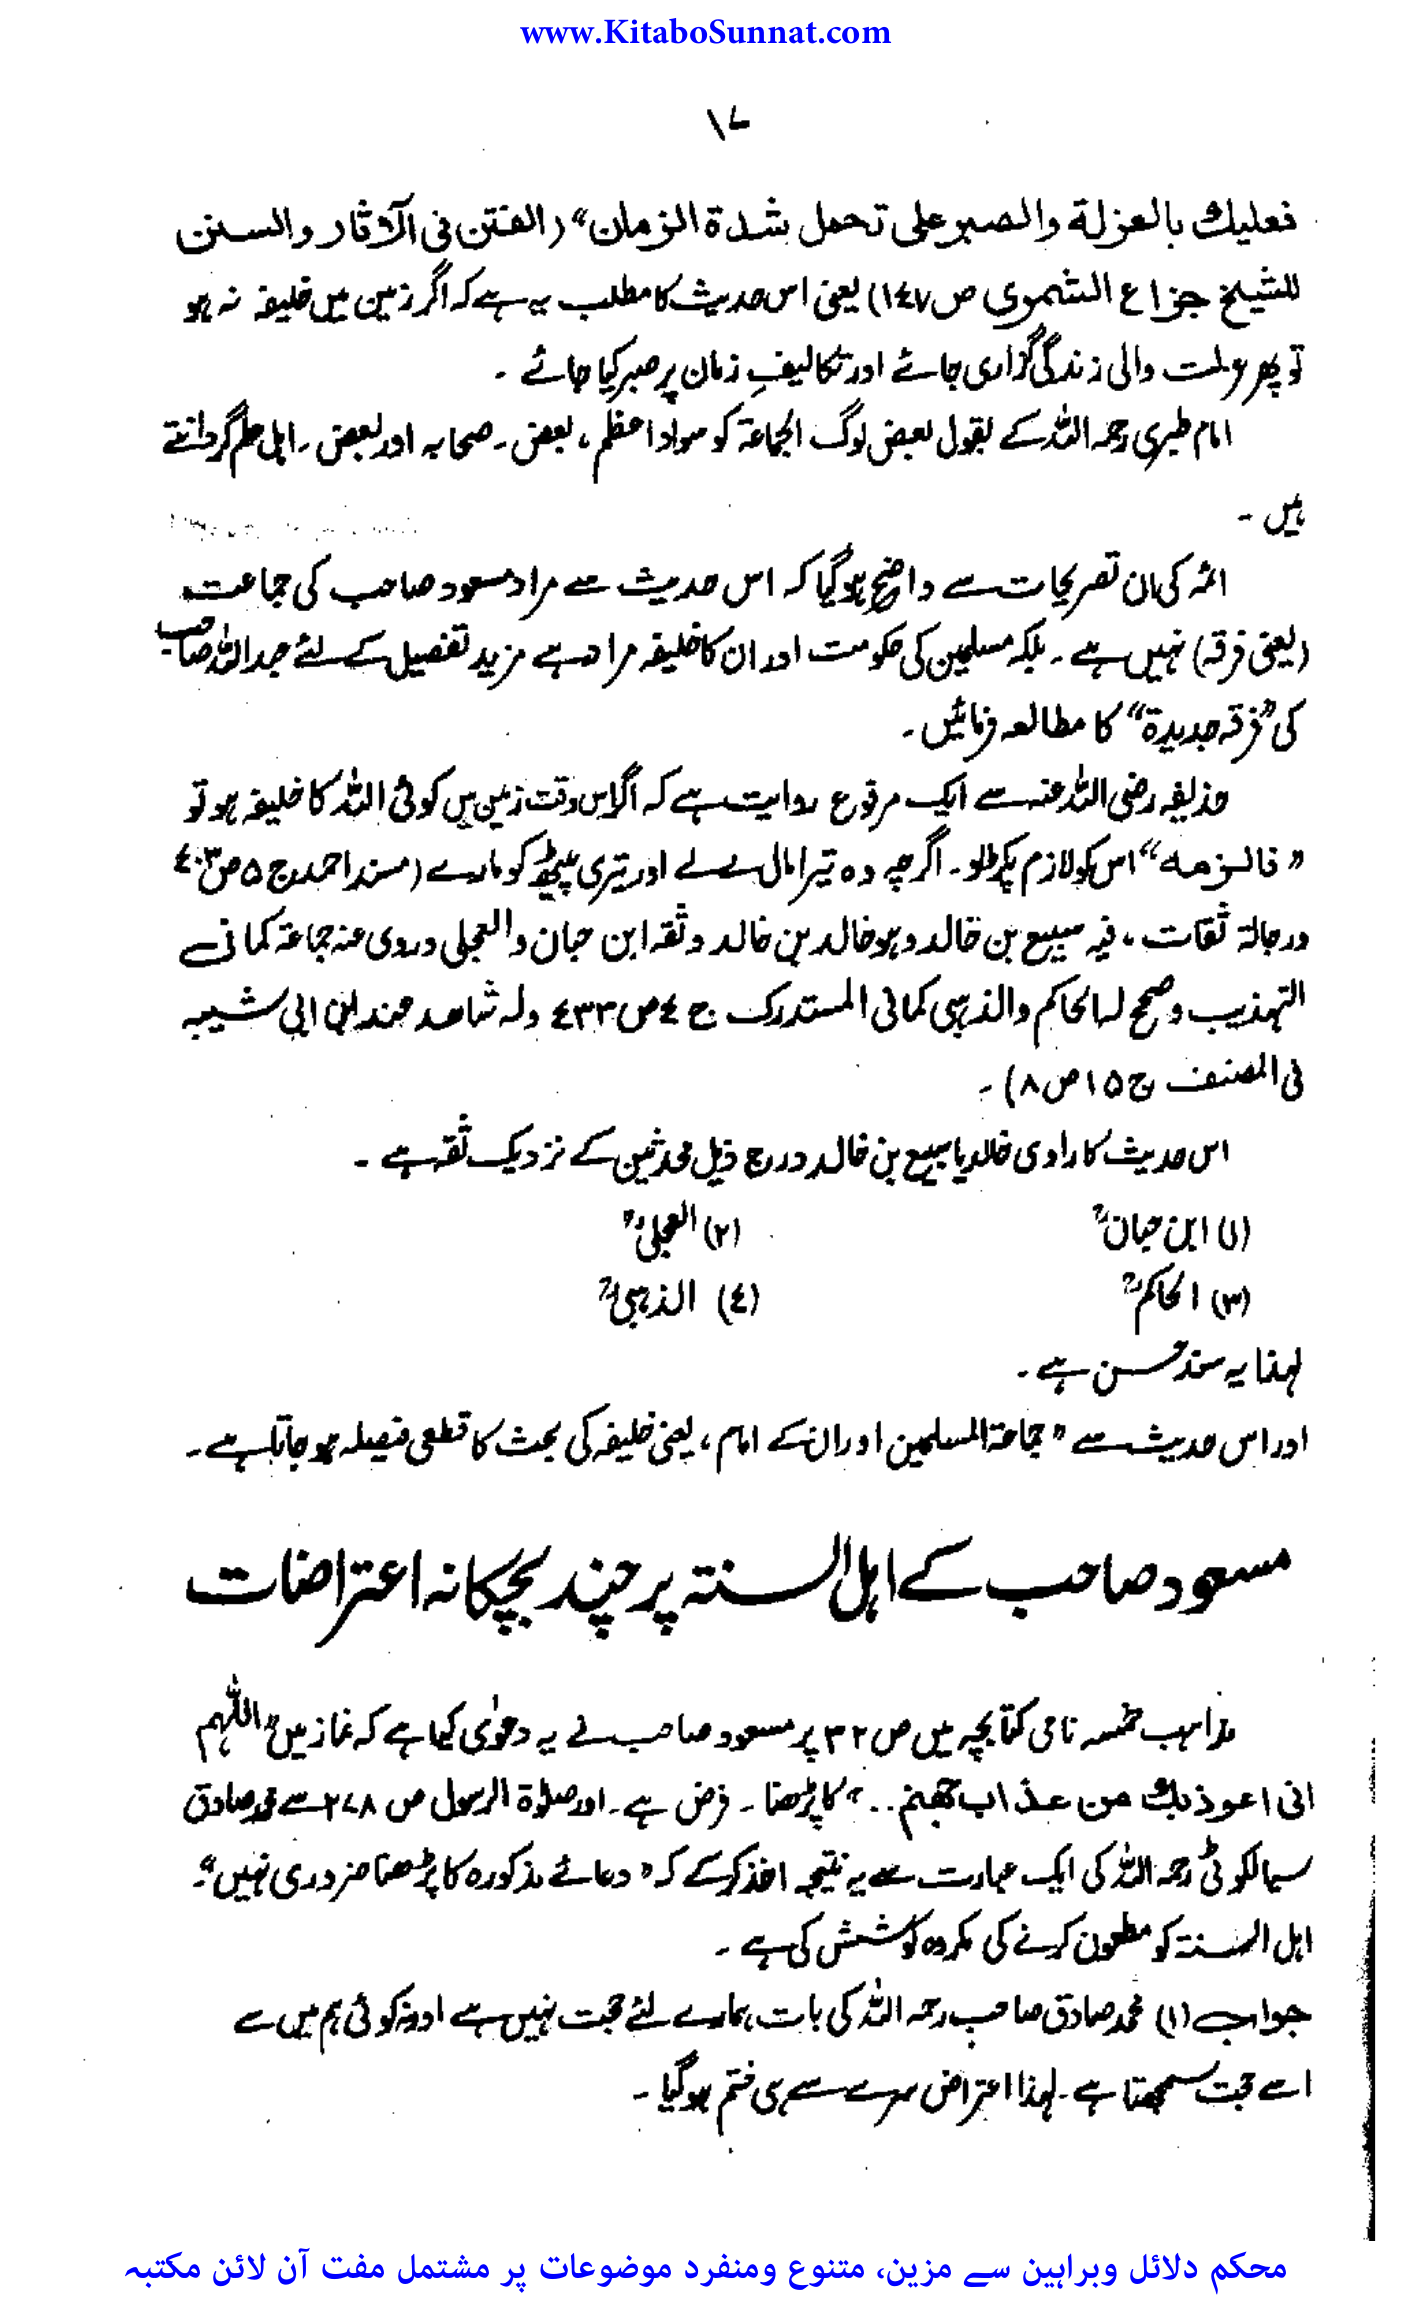 www.KitaboSunnat.com
۱۷
فعلیك بالعزلة والصبر علی تحمل شدة الزمان“ (الفتن فی الآثار والسنن
للشیخ جزاع الشمری ص ۱٤۷) یعنی اس حدیث کا مطلب یہ ہے کہ اگر زمین میں خلیفہ نہ ہو
تو پھر عزلت والی زندگی گزاری جائے اور تکالیفِ زمان پر صبر کیا جائے ۔
امام طبری رحمہ اللہ کے بقول بعض لوگ الجماعۃ کو سواد اعظم، بعض ۔ صحابہ اور بعض ۔ اہل علم گردانتے
ہیں ۔
ائمہ کی ان تصریحات سے واضح ہو گیا کہ اس حدیث سے مراد مسعود صاحب کی جماعت
(یعنی فرقہ) نہیں ہے ۔ بلکہ مسلمین کی حکومت اور ان کا خلیفہ مراد ہے مزید تفصیل کے لئے عبداللہ صاحب
کی ”فرقہ جدیدة“ کا مطالعہ فرمائیں ۔
حذیفہ رضی اللہ عنہ سے ایک مرفوع روایت ہے کہ اگر اس وقت زمین میں کوئی اللہ کا خلیفہ ہو تو
”فالزمه“ اس کو لازم پکڑ لو ۔ اگرچہ وہ تیرا مال لے لے اور تیری پیٹھ کو مارے (مسند احمد ج ۵ ص ٤۰۳
ورجالہ ثقات، فیہ سبیع بن خالد وہو خالد بن خالد وثقہ ابن حبان والعجلی وروی عنہ جماعۃ کما فی
التہذیب وصحح لہ الحاکم والذہبی کما فی المستدرک ج ٤ ص ٤۳۳ ولہ شاهد عند ابن ابی شیبہ
فی المصنف ج ۱۵ ص ۸) ۔
اس حدیث کا راوی خالد یا سبیع بن خالد درج ذیل محدثین کے نزدیک ثقہ ہے ۔
(۱) ابن حبانؒ (۲) العجلیؒ
(۳) الحاکمؒ (٤) الذہبیؒ
لہذا یہ سند حسن ہے ۔
اور اس حدیث سے ”جماعۃ المسلمین اور ان کے امام، یعنی خلیفہ کی بحث کا قطعی فیصلہ ہو جاتا ہے ۔
مسعود صاحب کے اہل السنتہ پر چند بچکانہ اعتراضات
مذاہب خمسہ نامی کتابچہ میں ص ۳۲ پر مسعود صاحب نے یہ دعوٰی کیا ہے کہ نماز میں ”اللٰہم
انی اعوذ بك من عذاب جهنم ..“ کا پڑھنا ۔ فرض ہے ۔ اور صلوٰۃ الرسول ص ۲۷۸ سے محمد صادق
سیالکوٹی رحمہ اللہ کی ایک عبارت سے یہ نتیجہ اخذ کر کے کہ ”دعائے مذکورہ کا پڑھنا ضروری نہیں“۔
اہل السنۃ کو مطعون کرنے کی مکروہ کوشش کی ہے ۔
جواب (۱) محمد صادق صاحب رحمہ اللہ کی بات ہمارے لئے حجت نہیں ہے اور نہ کوئی ہم میں سے
اسے حجت سمجھتا ہے ۔ لہذا اعتراض سرے سے ہی ختم ہو گیا ۔
محکم دلائل وبراہین سے مزین، متنوع ومنفرد موضوعات پر مشتمل مفت آن لائن مکتبہ